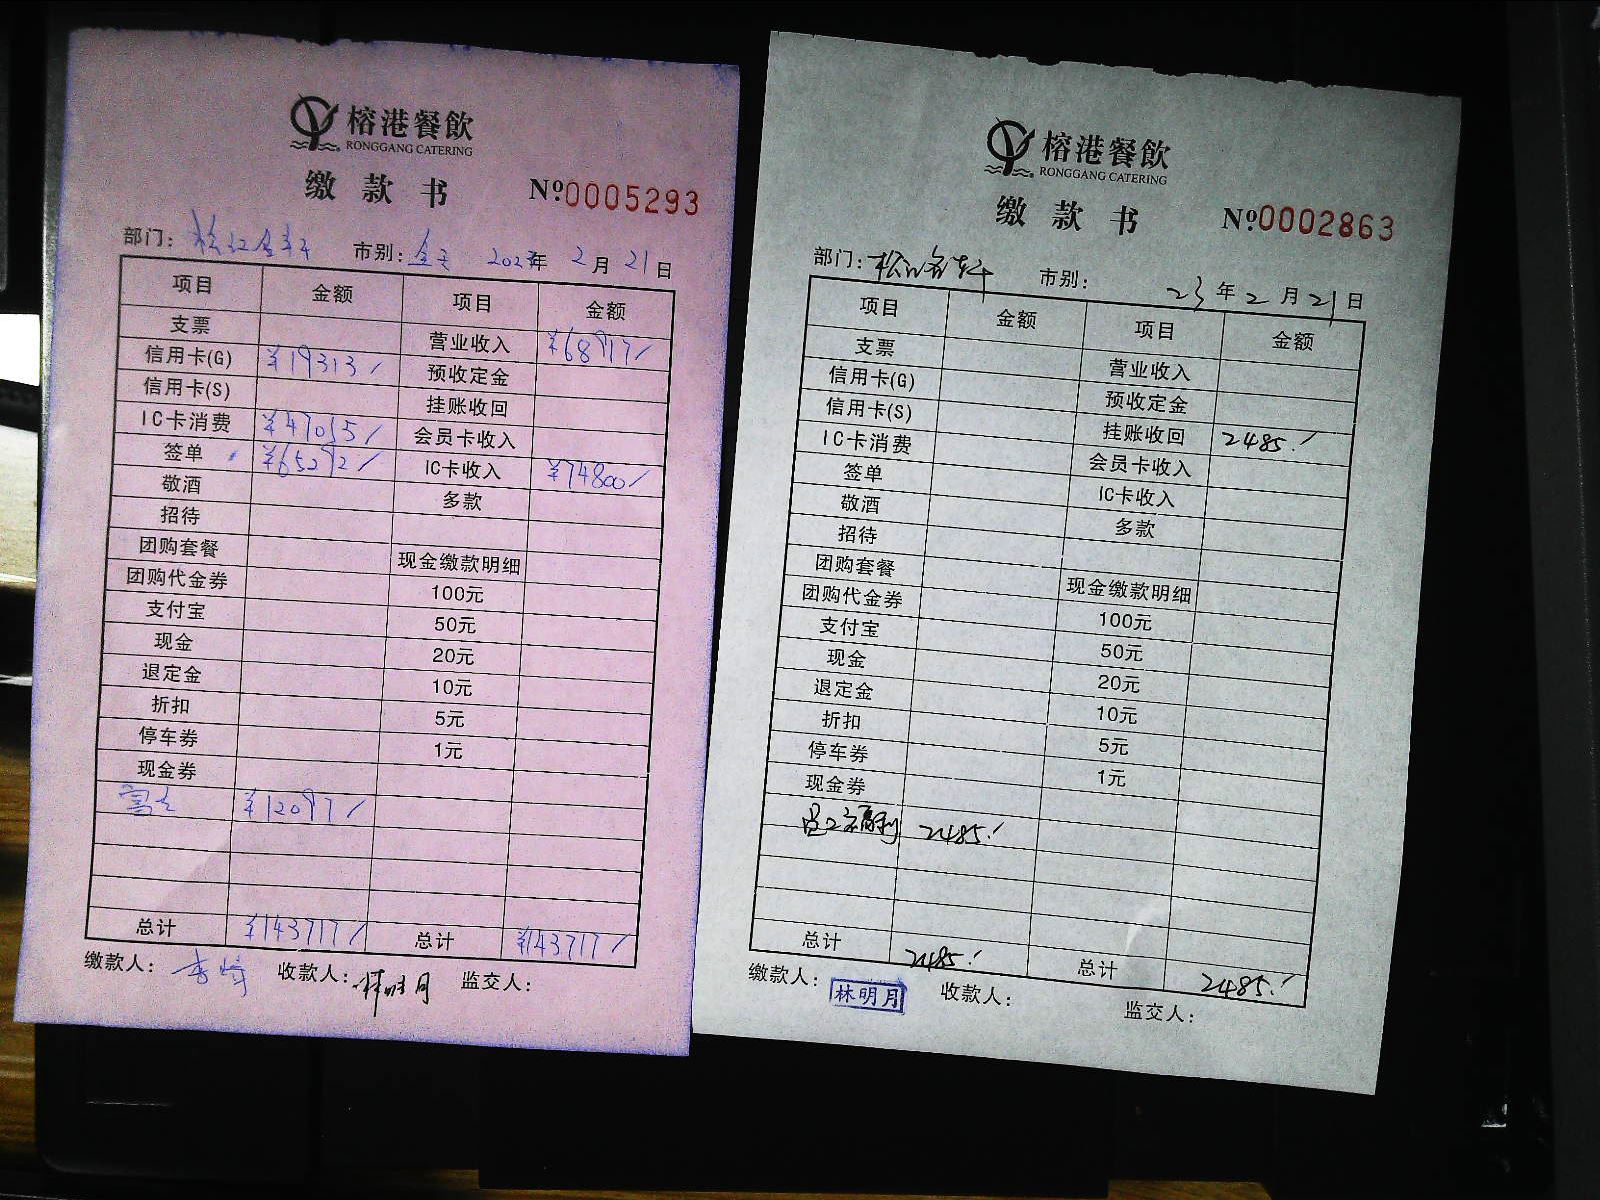 榕港餐飲
RONGGANG CATERING
缴款书 №0005293
部门： 市别：全天 2023年2月21日
项目 金额 项目 金额
支票 营业收入 ¥68917/
信用卡(G) ¥19313/ 预收定金
信用卡(S) 挂账收回
IC卡消费 ¥47015/ 会员卡收入
签单 ¥65292/ IC卡收入 ¥74800/
敬酒 多款
招待
团购套餐 现金缴款明细
团购代金券 100元
支付宝 50元
现金 20元
退定金 10元
折扣 5元
停车券 1元
现金券
¥12097/
总计 ¥143717/ 总计 ¥143717/
缴款人： 收款人：林明月 监交人：
榕港餐飲
RONGGANG CATERING
缴款书 №0002863
部门： 市别： 23年2月21日
项目 金额 项目 金额
支票 营业收入
信用卡(G) 预收定金
信用卡(S) 挂账收回 2485./
IC卡消费 会员卡收入
签单 IC卡收入
敬酒 多款
招待
团购套餐 现金缴款明细
团购代金券 100元
支付宝 50元
现金 20元
退定金 10元
折扣 5元
停车券 1元
现金券
员工福利 2485./
总计 2485./ 总计 2485./
缴款人：林明月 收款人： 监交人：